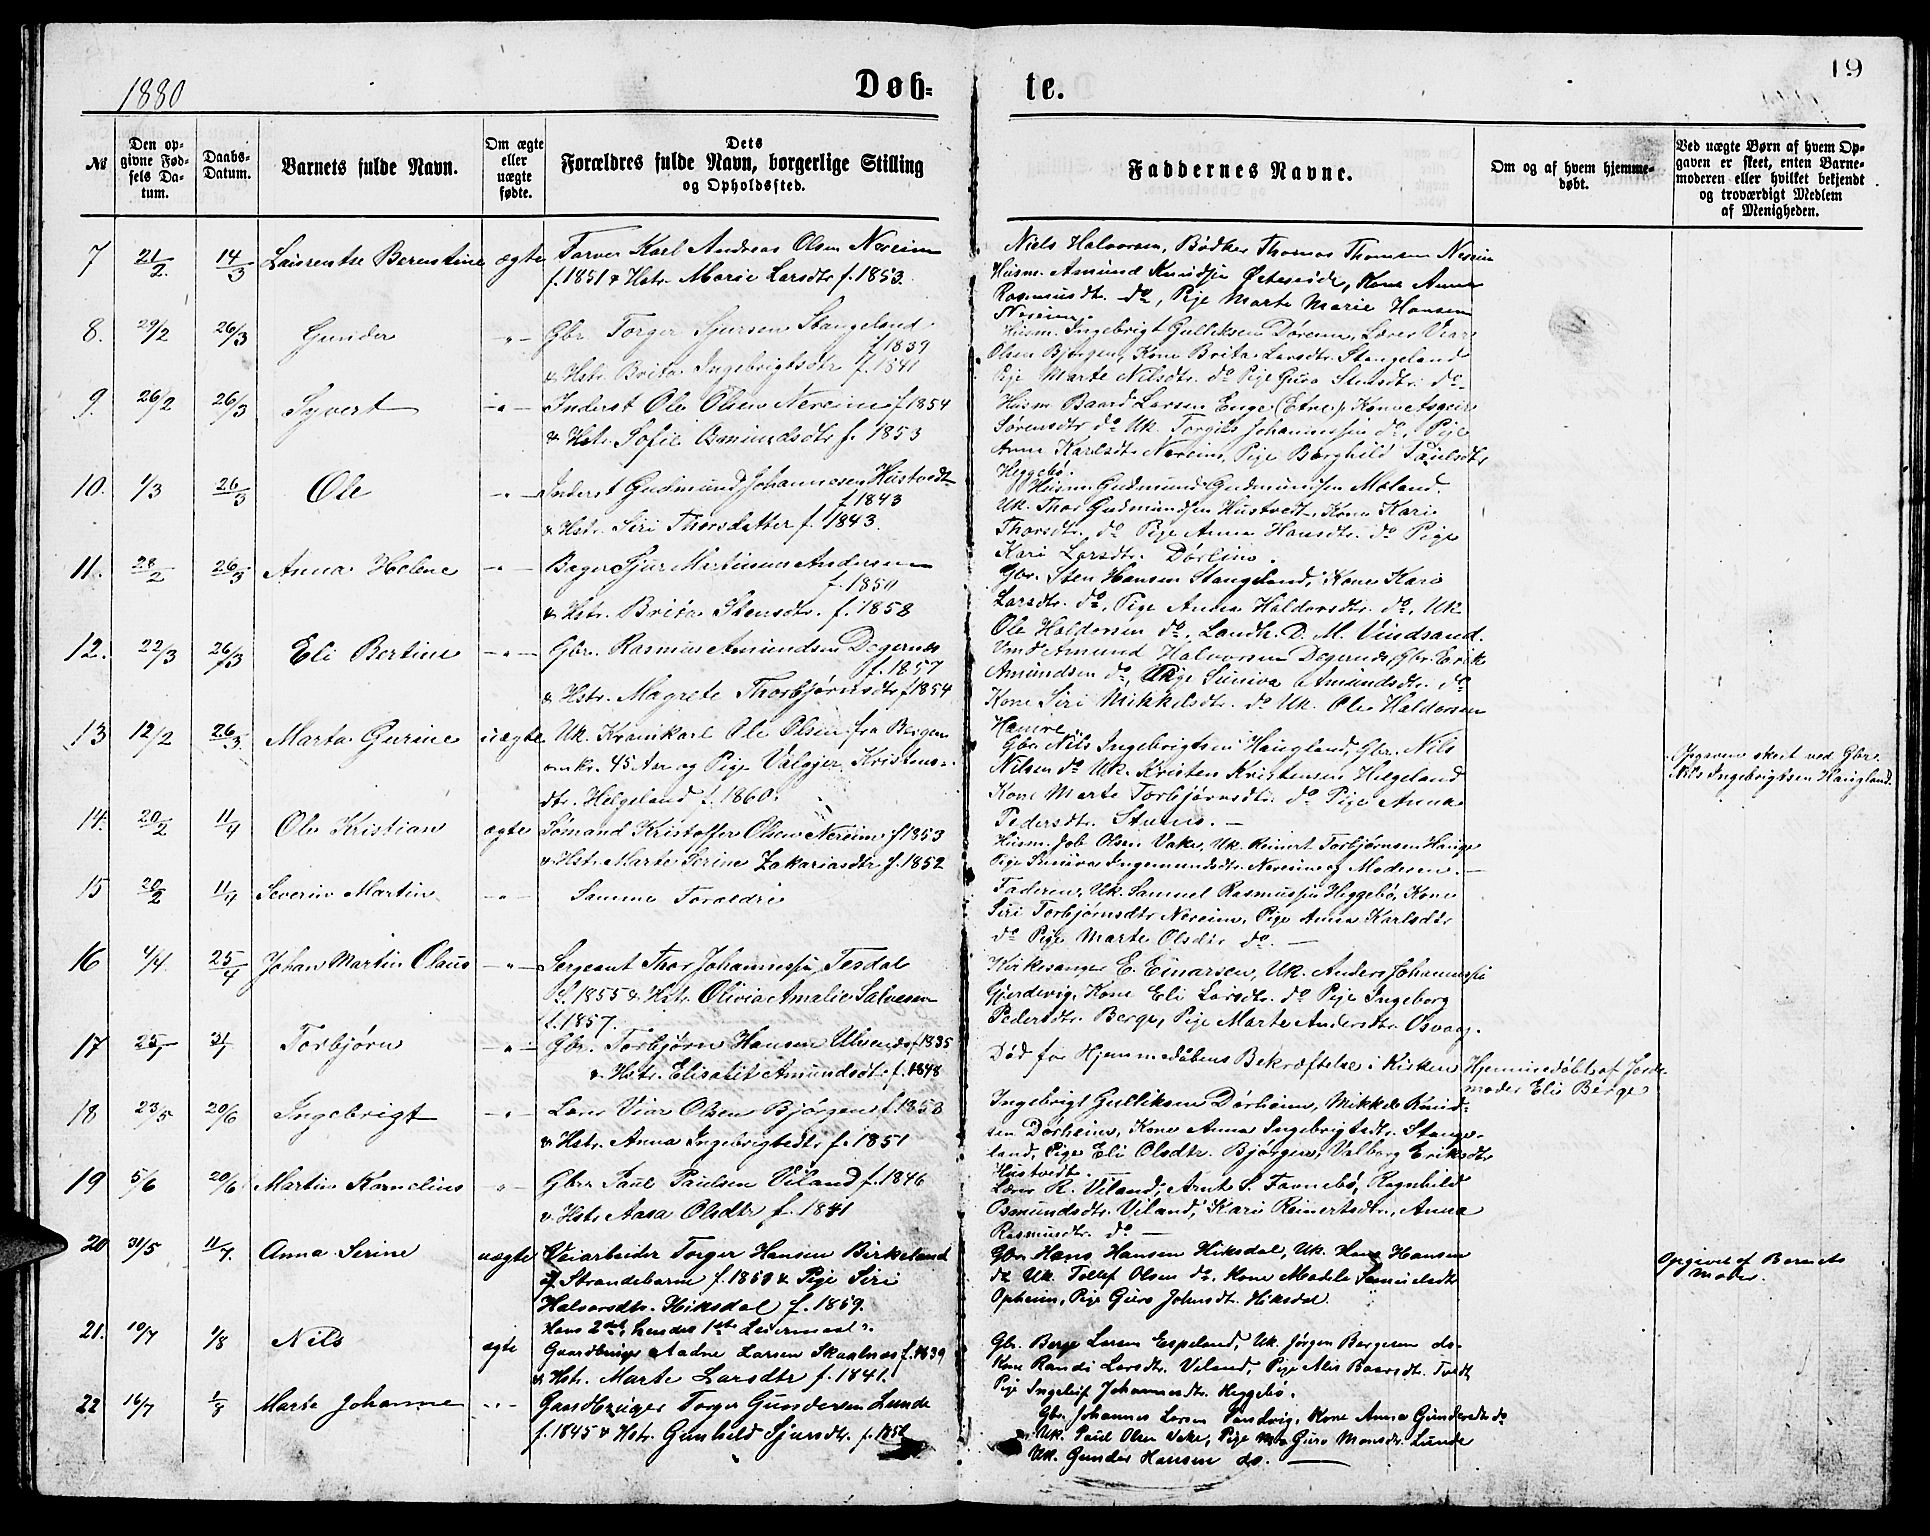 1880
Døb-
te.
19
№
Den opgivne Fødsels Datum.
Daabs-Datum.
Barnets fulde Navn.
Om ægte eller uægte fødte.
Dets Forældres fulde Navn, borgerlige Stilling og Opholdssted.
Faddernes Navne.
Om og af hvem hjemmedøbt.
Ved uægte Børn af hvem Opgaven er skeet, enten Barnemoderen eller hvilket bekjendt og troværdigt Medlem af Menigheden.
7 21/2 14/3 Laurentse Berentine ægte Farver Karl Andreas Olsen Nereim
f. 1851 & Hstr. Marie Larsdtr f. 1853.
Niels Halvorsen, Bødker Thomas Thomsen Nereim
Husm. Amund Knudsen Østesøde, Kone Anna
Rasmusdtr. do, Pige Marte Marie Hansen
Nereim.
8. 29/2 26/3 Gunder -"- Gbr. Torger Sjursen Stangeland
f 1839
& Hstr. Brita Ingebrigtsdtr f. 1841
Husm. Ingebrigt Gulliksen Dørheim, Lærer Viar
Olsen Bjørgen, Kone Brita Larsdtr. Stangeland
Pige Marte Nilsdtr. do Pige Guro Stensdtr. do
9. 26/2 26/3 Syvert -"- Inderst Ole Olsen Nereim f 1854
& Hstr. Sofie Osmundsdtr f. 1853
Husm. Baard Larsen Enge (Etne), Kone Asgjer
Sørensdtr do Uk. Torgils Johannessen do, Pige
Anna Karlsdtr Nereim, Pige Borghild Paulsdtr
Heggebø.
10. 1/3 26/3 Ole -"- Inderst Gudmund Johannesen Hustvedt
f. 1843
& Hstr. Siri Thorsdatter f. 1843.
Husm Gudmund Gudmundsen Moland.
Uk. Thor Gudmundsen Hustvedt, Kone Kari
Thorsdtr. do Pige Anna Hansdtr. do Pige
Kari Larsdtr. Dørheim.
11. 28/2 26/3 Anna Helene -"- Bager Sjur Martinus Andersen
f. 1850
& Hstr. Brita Stensdtr. f. 1858
Gbr. Sten Hansen Stangeland, Kone Kari
Larsdtr. do, Pige Anna Haldorsdtr. do, Uk
Ole Haldorsen do, Landh. D. M. Vindsand.
12. 22/3 26/3 Eli Bertine -"- Gbr. Rasmus Amundsen Degernes
f. 1857
& Hstr. Magrete Thorbjørnsdtr f 1854
Vmd Amund Halvorsen Degernes, Gbr. Erik
Amundsen do, Pige Suniva Amundsdtr. do
Kone Siri Mikkelsdtr. do Uk. Ole Haldorsen
Hamre.
13 12/2 26/3 Marta Gurine uægte Uk. Kramkarl Ole Olsen fra Bergen
omkr. 45 Aar og Pige Valgjer Kristens-
dtr. Helgeland f. 1860.
Gbr Nils Ingebrigtsen Haugland, Gbr. Nils
Nilsen do Uk. Kristen Kristensen Helgeland
Kone Marte Torbjørnsdtr. do Pige Anna
Pedersdtr. Stuens. —
Opgaven skeet ved Gbr.
Nils Ingebrigtsen Haugland.
14. 20/2 11/4 Ole Kristian ægte Sømand Kristoffer Olsen Nereim f 1853
& Hstr. Marte Serine Zakariasdtr f. 1852
Husm. Job Olsen Vake, Uk. Reinert Torbjørnsen Hauge
Pige Suniva Ingemundsdtr. Nereim og Moderen. —
15 20/2 11/4 Severin Martin -"- Samme Foreldre
Faderen, Uk. Samuel Rasmussen Heggebø, Kone
Siri Torbjørnsdtr Nereim, Pige Anna Karlsdtr
do Pige Marte Olsdtr do. —
16 4/4 25/4 Johan Martin Olaus -"- Sergeant Thor Johannessen Tesdal
f. 1855 & Hstr. Olivia Amalie Salvesen
f. 1857.
Kirkesanger E. Einarsen, Uk. Anders Johannessen
Gjerdevig, Kone Eli Larsdtr. do Pige Ingeborg
Pedersdtr. Berge, Pige Marte Andersdtr. Osvaag.
17 Torbjørn -"- Gbr. Torbjørn Hansen f 1835
& Hstr. Elisabet Amundsdtr f. 1848
Død før Hjemmedåbens Bekræftelse i Kirken
Hjemmedøbt af Jorde-
moder Eli Berge
18 23/5 20/6 Ingebrigt -"- Lærer Viar Olsen Bjørgen f. 1850
& Hstr. Anna Ingebrigtsdtr f. 1851
Ingebrigt Gulliksen Dørheim, Mikkel Knud-
sen Dørheim, Kone Anna Ingebrigtsdtr. Stange-
land, Pige Eli Olsdtr. Bjørgen, Valborg Eriksdtr
Hustvedt. —
19 5/6 20/6 Martin Kornelius " Gbr. Paul Paulsen Viland f. 1846
& Hstr Aasa Olsdtr f. 1841
Lærer R. Viland, Arnt S. Favnebø, Ragnhild
Osmundsdtr. Viland, Kari Reinertsdtr, Anna
Rasmusdtr. do —
20 31/5 11/7. Anna Serine uægte Veiarbeider Torger Hansen Birkeland
af Strandebarm f. 1850 & Pige Siri
Halvorsdtr. Hiksdal f. 1859.
Hans 2det, hendes 1ste Leiermaal.
Gbr Hans Hansen Hiksdal, Uk. Hans Hansen
do Uk. Tollef Olsen do. Kone Madele Samuelsdtr
Opheim, Pige Guro Johnsdtr. Hiksdal.
Opgivet af Barnets
Moder.
21. 10/7 1/8 Nils ægte Gaardbruger Aadne Larsen Skaalnes f. 1839
& Hstr. Marte Larsdtr f. 1841.
Gbr. Berge Larsen Espeland, Uk. Jørgen Bergesen do.
Kone Randi Larsdtr. Viland, Pige Alis Baarsdtr. Tvedt
Pige Ingeleif Johannesdtr. Heggebø.
22 16/7 1/8 Marta Johanne -"- Gaardbruger Torger Gundersen Lunde
f. 1845 & Hstr. Gunhild Sjursdtr. f. 1852
Gbr. Johannes Larsen Sandvig, Kone Anna Gundersdtr do
Uk. Paul Olsen Vake, Pige Guro Monsdtr. Lunde
Uk. Gunder Hansen do. —